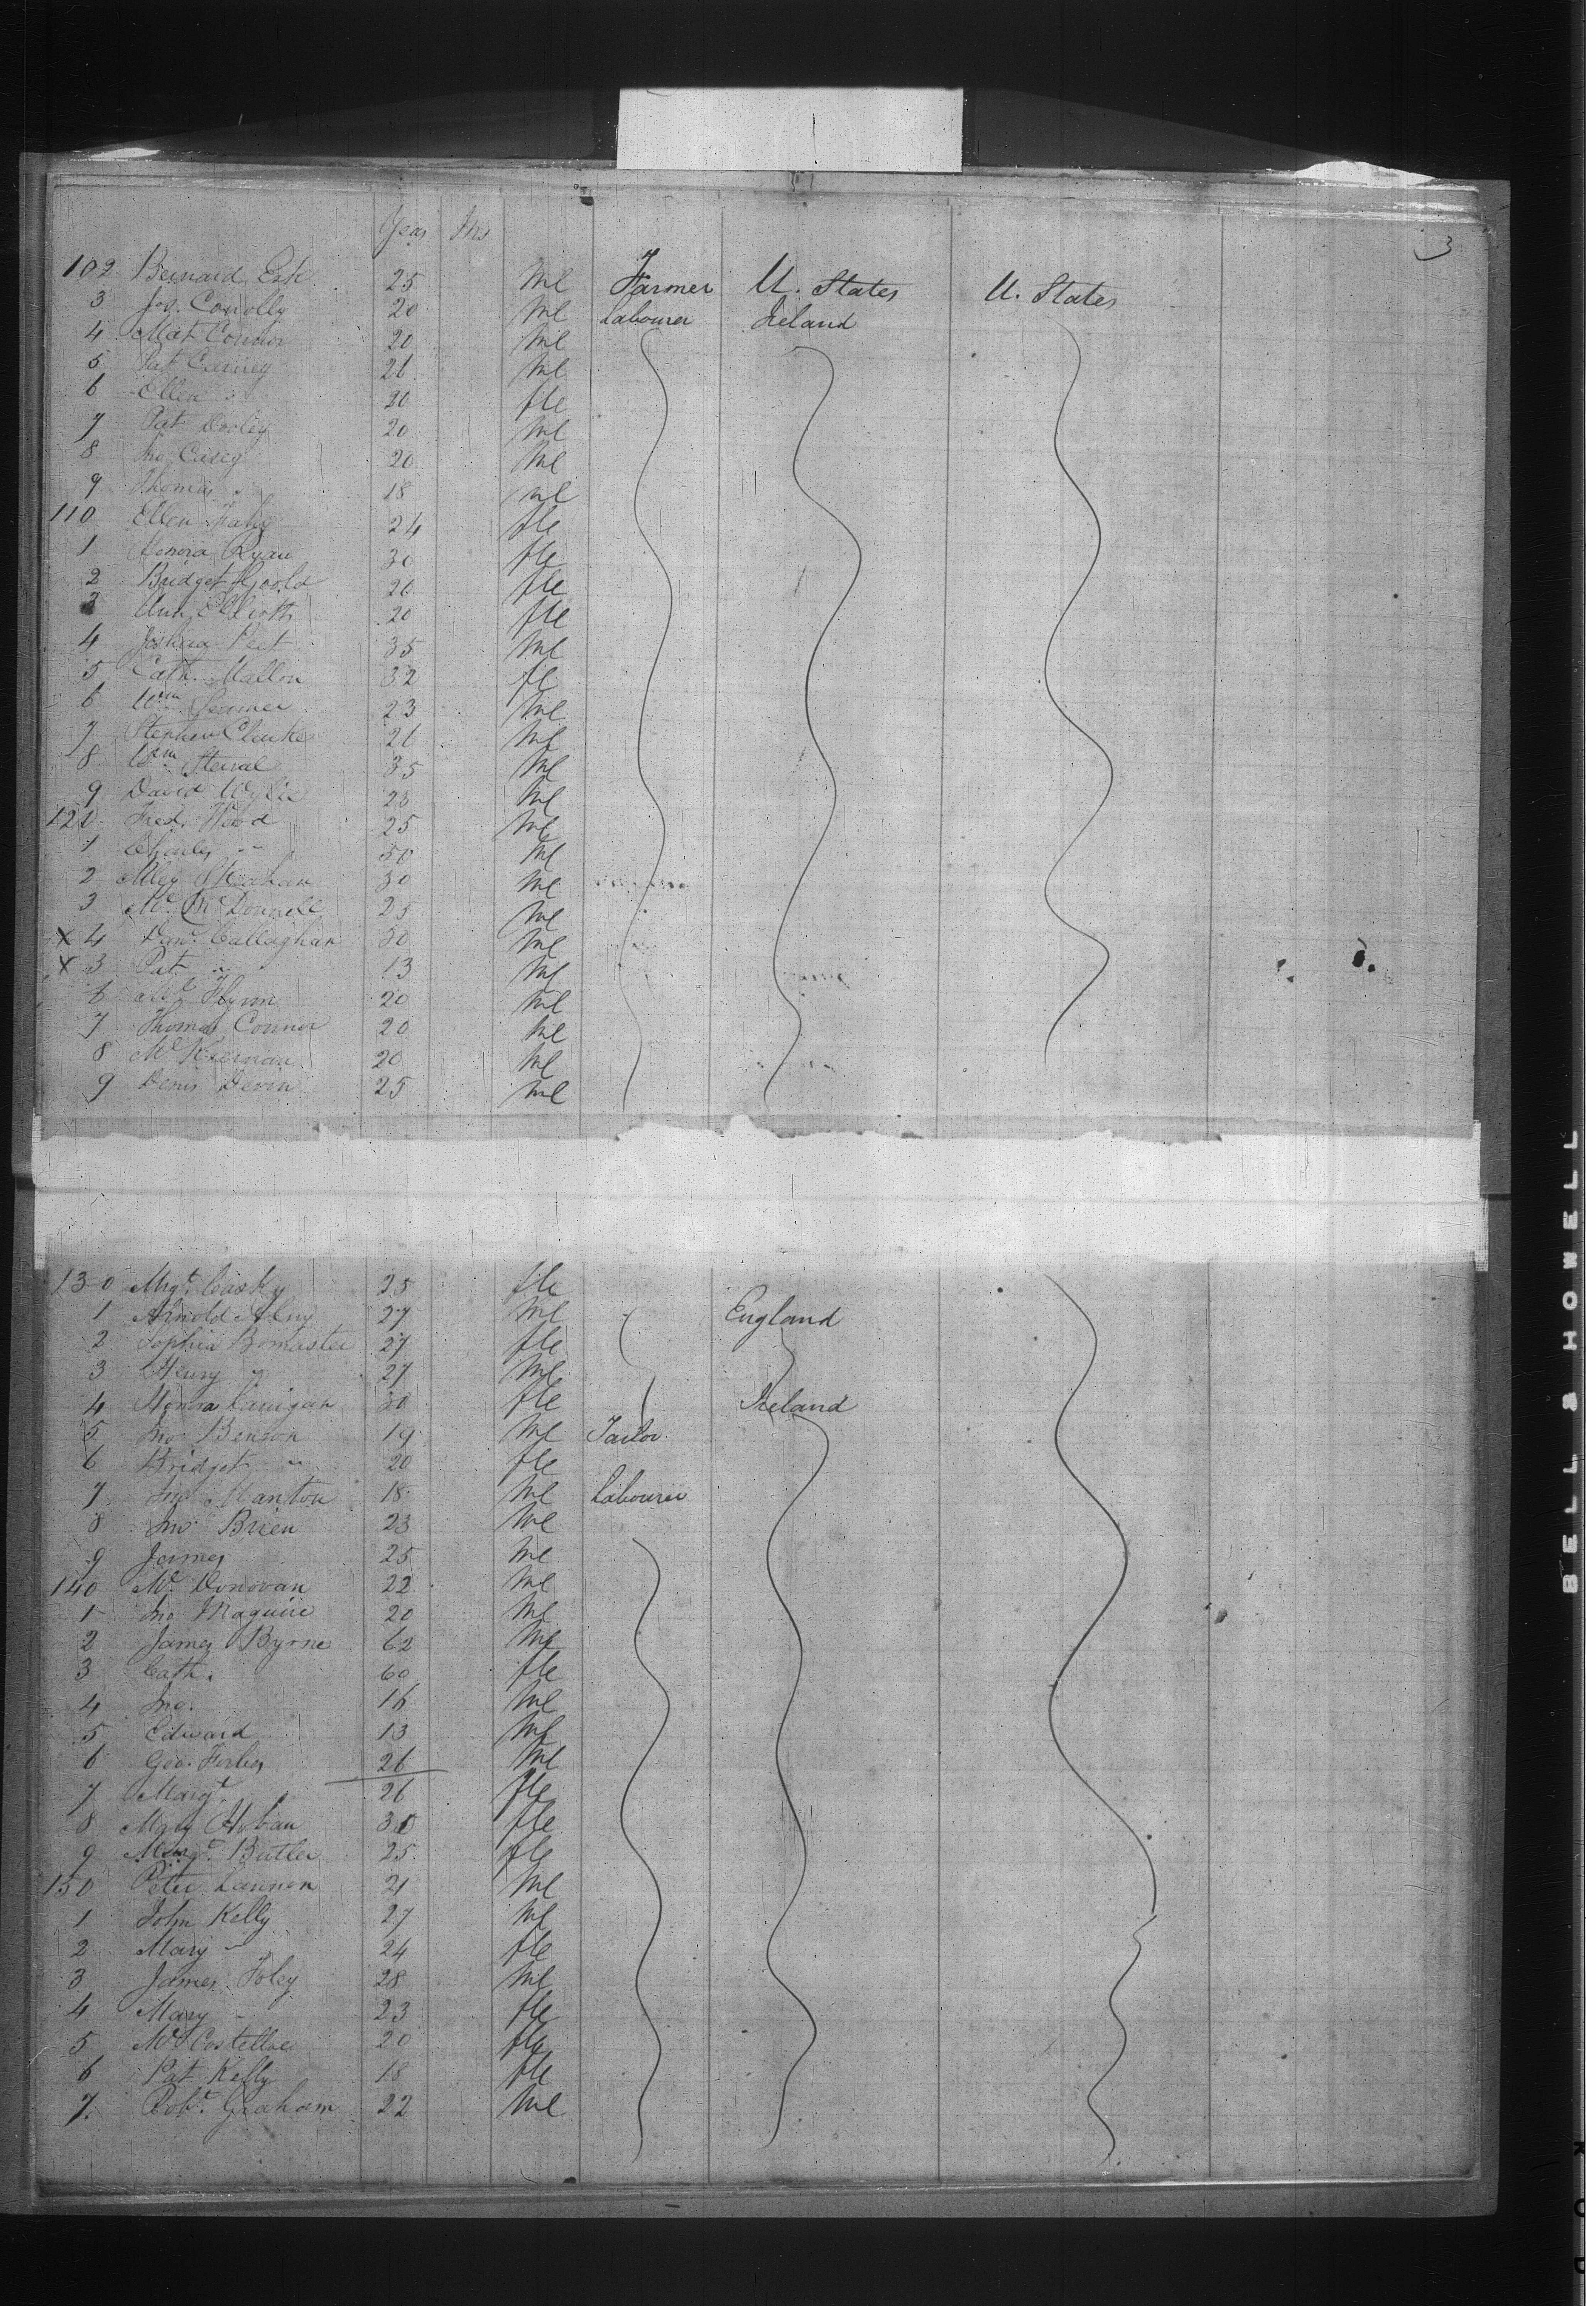 3
Years Ms
102 Bernard 25 Ml Farmer U. States U. States
3 Jos. Conolly 20 Ml Labourer Ireland
4 Mat Connor 20 Ml
5 Pat 26 Ml
6 Ellen " 20 fle
7 Pat Dooley 20 Ml
8 Jno Casey 20 Ml
9 Thomas " 18 Ml
110 Ellen Fahy 24 fle
1 Honora Ryan 30 fle
2 Bridget 20 fle
3 Ann 20 fle
4 Joshua Peet 35 Ml
5 Cath. Mallon 32 fle
6 Wm 23 Ml
7 Stephen Clarke 26 Ml
8 Wm 35 Ml
9 David Wylie 23 Ml
120 Fred. Wood 25 Ml
1 Charles " 50 Ml
2 30 Ml
3 Ml McDonnell 25 Ml
x 4 Danl Callaghan 30 Ml
x 5 Pat " 13 Ml
6 Ml Flynn 20 Ml
7 Thomas Connor 20 Ml
8 Ml Kiernan 20 Ml
9 Denis Devin 25 Ml
130 Mrgt. Casky 25 fle
1 Arnold 27 Ml England
2 Sophia Bomaster 27 fle
3 Henry " 27 Ml
4 Honora Lanigan 30 fle Ireland
5 Jno Benson 19 Ml Tailor
6 Bridget " 20 fle
7 Jno Manton 18 Ml Labourer
8 Jno Brien 23 Ml
9 James 25 Ml
140 Ml Donovan 22 Ml
1 Jno Maguire 20 Ml
2 James Byrne 62 Ml
3 Cath. 60 fle
4 Jno. 16 Ml
5 Edward 13 Ml
6 Geo. Forbes 26 Ml
7 Margt. 26 fle
8 Mary Hoban 30 fle
9 Margt. Butler 25 fle
150 Peter Lannon 21 Ml
1 John Kelly 27 Ml
2 Mary " 24 fle
3 James Foley 28 Ml
4 Mary " 23 fle
5 Ml Costelloe 20 fle
6 Pat Kelly 18 fle
7. Robt. Graham 22 Ml
BELL & HOWELL